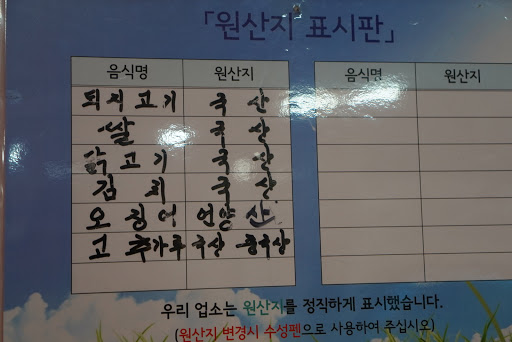 「원산지 표시판」
음식명 원산지 음식명 원산지
되지고기 국산
쌀 국산
국산
김치 국산
오징어 언양산
고추가루 국산 중국상
우리 업소는 원산지를 정직하게 표시했습니다.
(원산지 변경시 수성펜으로 사용하여 주십시오)